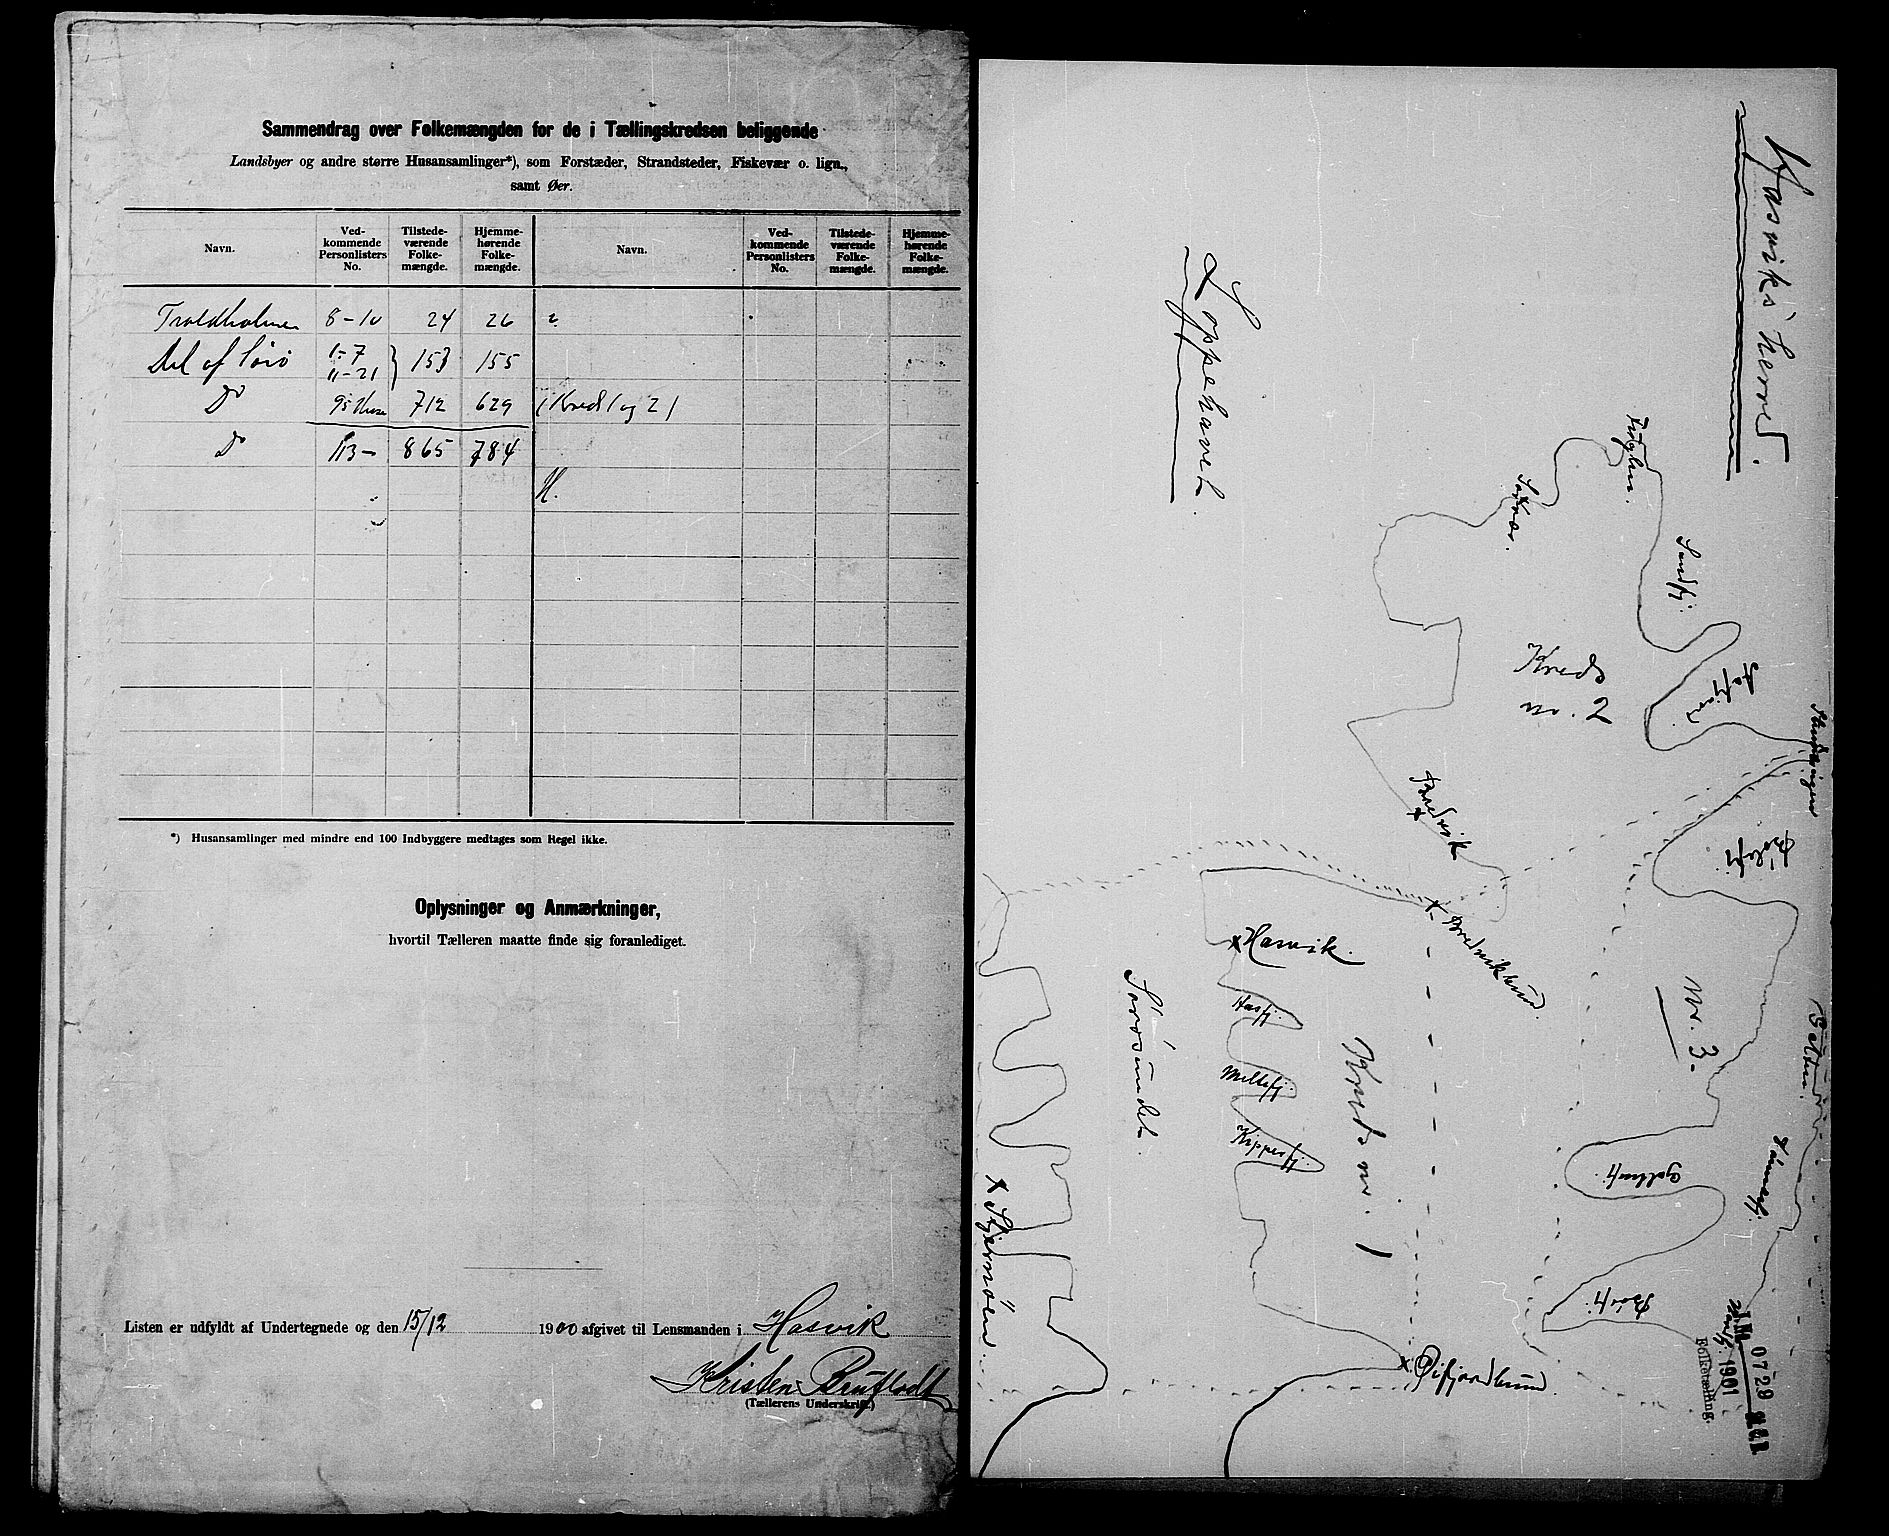 Sammendrag over Folkemængden for de i Tællingskredsen beliggende
Landsbyer og andre større Husansamlinger*), som Forstæder, Strandsteder, Fiskevær o. lign.,
samt Øer.
Navn. Ved-kommende Personlisters No. Tilstede-værende Folke-mængde. Hjemme-hørende Folke-mængde. Navn. Ved-kommende Personlisters No. Tilstede-værende Folke-mængde. Hjemme-hørende Folke-mængde.
Troldholmen 8-10 24 26
Del af Sörö 1-7 11-21 } 153 155
Do 95 Huse 712 629 (Kreds 1 og 2)
Do 113 - 865 784
H.
*) Husansamlinger med mindre end 100 Indbyggere medtages som Regel ikke.
Oplysninger og Anmærkninger,
hvortil Tælleren maatte finde sig foranlediget.
Listen er udfyldt af Undertegnede og den 15/12 1900 afgivet til Lensmanden i Hasvik
Kristen Bruflodt
(Tællerens Underskrift.)
Hasviks herred.
Loppehavet.
Sörvær.
Sandfj.
Kreds
nr. 2
Bredvik
x Bredvikbund.
x Hasvik.
Hasfj.
Meltefj.
Kippesfj.
Sörösundet.
Kreds nr. 1
nr. 3.
Bölefj.
Galten
Galtenfj.
x Stjernöen.
x Öifjordbund.
0729
1901
Folketælling.